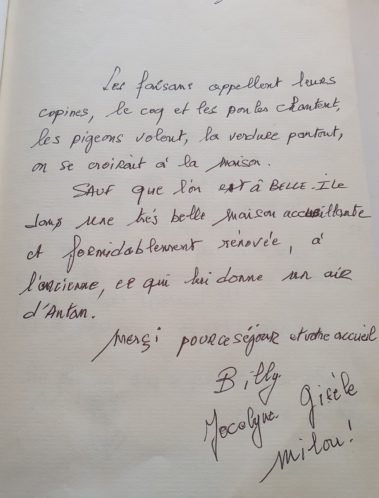 Les faisans appellent leurs
copines, le coq et les poules chantent,
les pigeons volent, la verdure partout,
on se croirait à la maison.
SAUF que l'on est à BELLE-ILE
dans une très belle maison accueillante
et formidablement rénovée, à
l'ancienne, ce qui lui donne un air
d'Antan.
Merçi pour ce séjour et votre accueil
Billy
Jocelyne Gisèle
Milou!